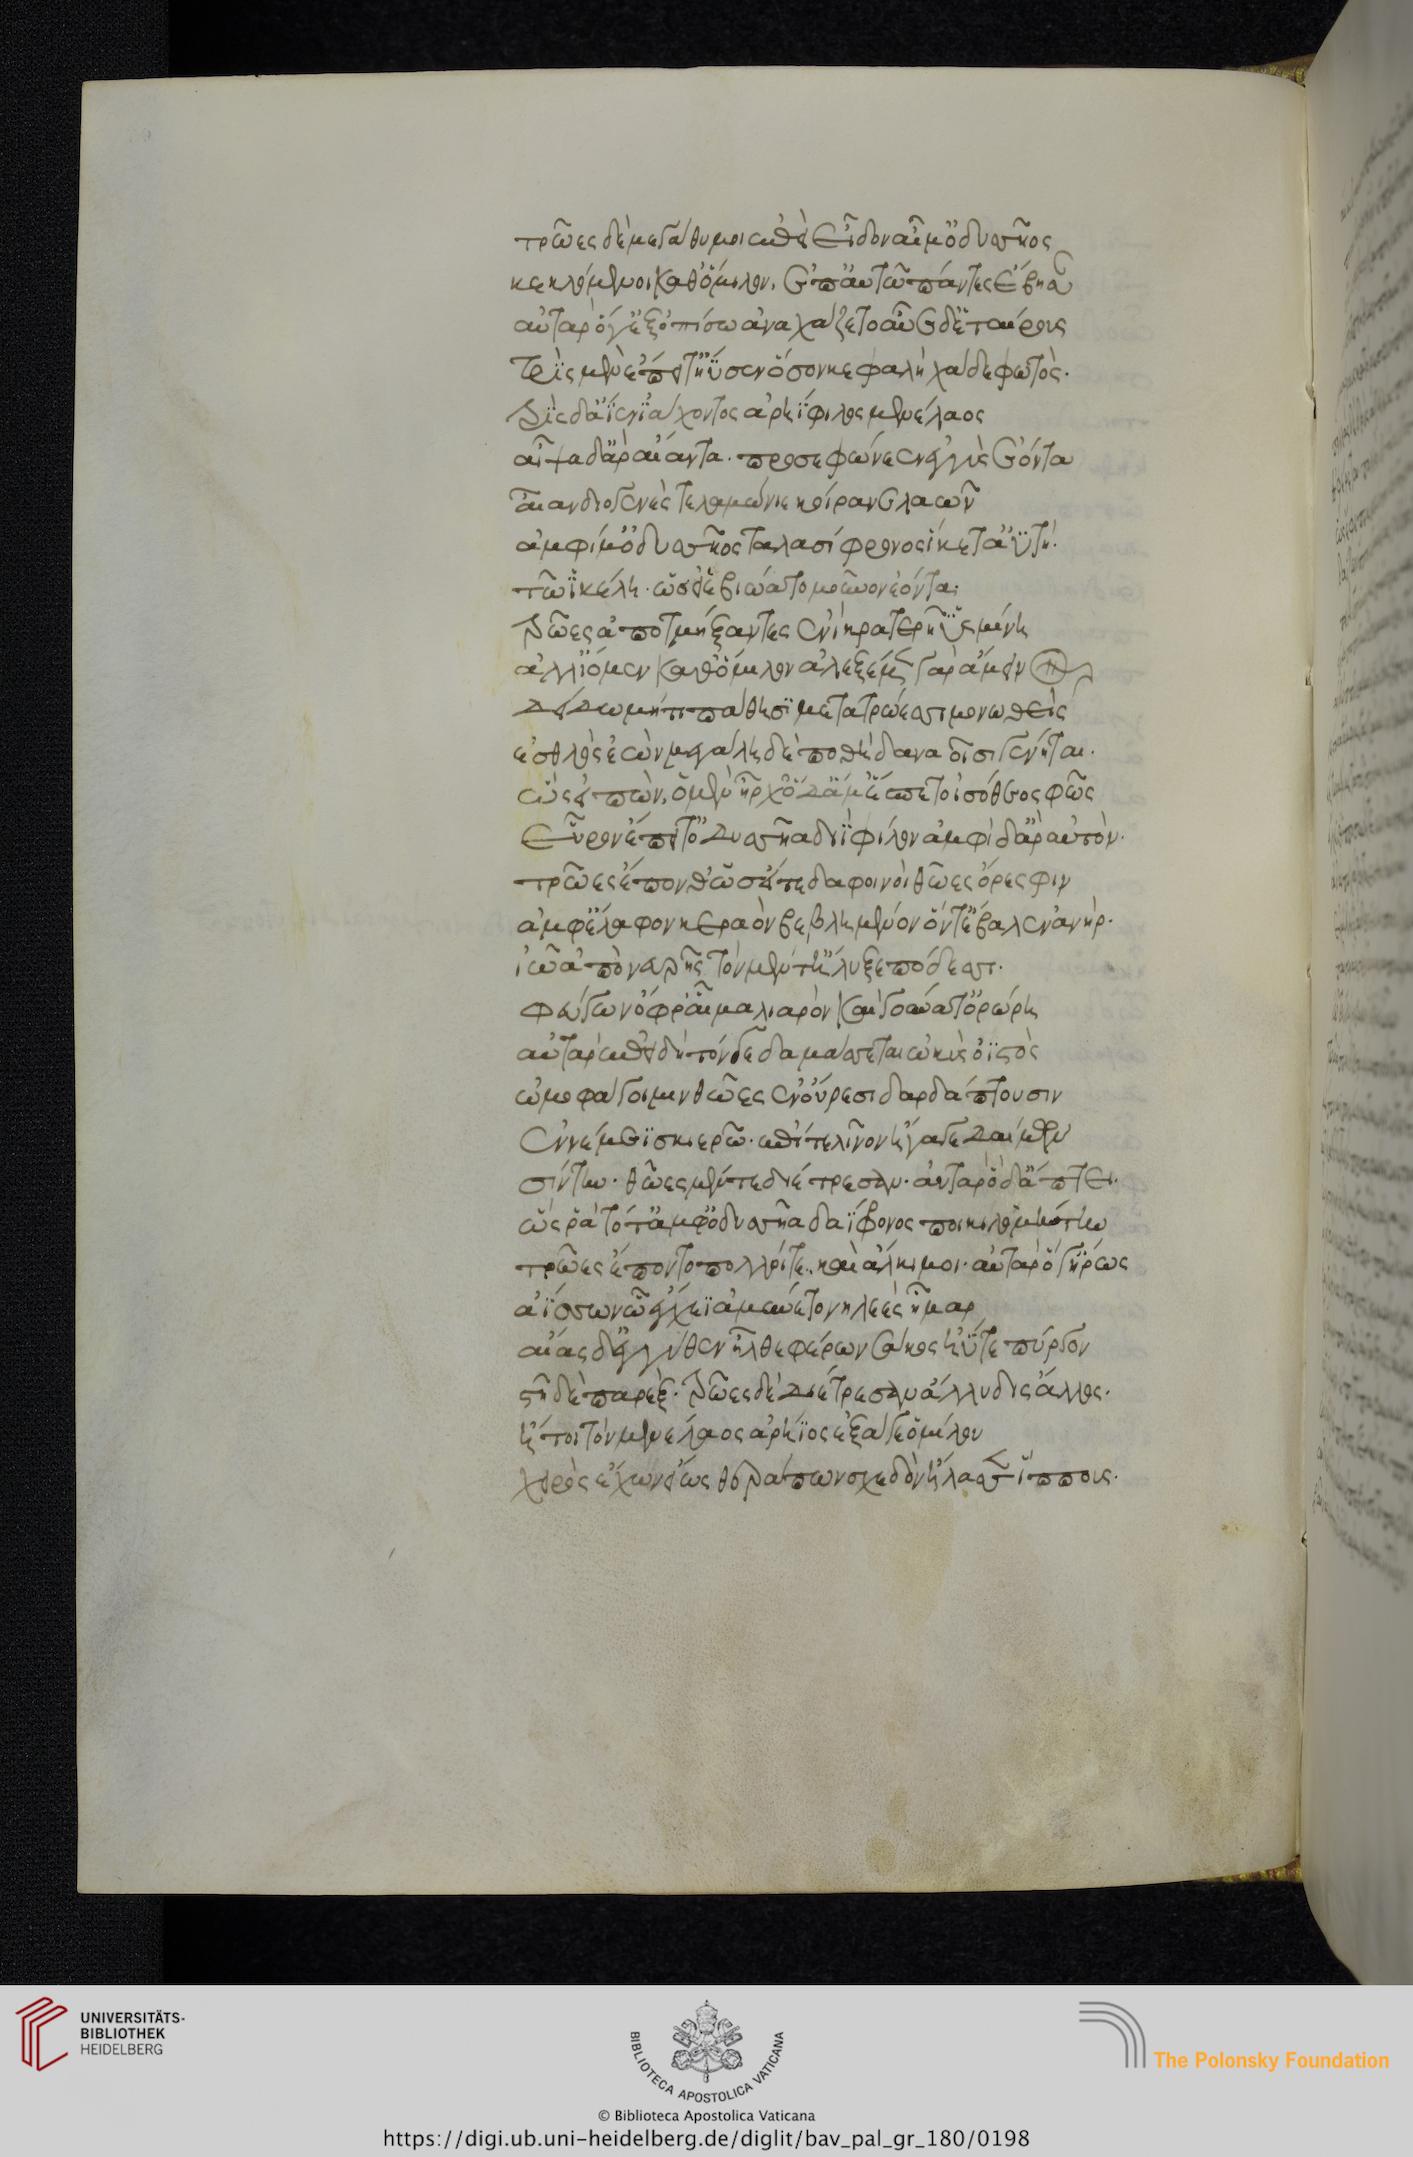 τρῶες δὲ μεγάθυμοι ἐπεὶ εἶδον αἷμ' ὀδυσῆος
κεκλόμενοι καθ' ὅμιλον. ἐπ' αὐτῶ πάντες ἔβησαν
αὐτὰρ ὅγ' ἐξοπίσω ἀναχάζετο αὖε δ' ἑταίρους
τρὶς μὲν ἔπειτ' ἤϋσεν ὅσον κεφαλὴ χάδε φωτὸς.
τρὶς δ' ἄϊεν ἰάχοντος ἀρηΐφιλος μενέλαος
αἶψα δ' ἄρ' αἴαντα. προσεφώνεεν ἐγγὺς ἐόντα
αἶαν διογενὲς τελαμώνιε κοίρανε λαῶν
ἀμφί μ' ὀδυσῆος ταλασίφρονος ἵκετ' ἀϋτή.
τῶ ἰκέλη. ὡς εἴ ἑ βιώατο μοῦνον ἐόντα.
τρῶες ἀποτμήξαντες ἐνὶ κρατερῆ ὑσμίνη
ἀλλ' ἴομεν καθ' ὅμιλον ἀλεξέμεναι γὰρ ἄμεινον
δείδω μή τι πάθησϊ μετὰ τρώεσσι μονωθεὶς
ἐσθλὸς ἐὼν μεγάλη δὲ ποθὴ δαναοῖσι γένηται.
ὣς εἰπὼν, ὁ μὲν ἦρχ' ὁ δ' ἅμ' ἕσπετο ἰσόθεος φῶς
εὗρον ἔπειτ' ὀδυσῆα διῒ φίλον ἀμφὶ δ' ἄρ' αὐτὸν.
τρῶες ἕπονθ' ὡς εἴ τε δαφοινοὶ θῶες ὄρεσφιν
ἀμφ' ἔλαφον κεραὸν βεβλημένον ὅν τ' ἔβαλεν ἀνὴρ.
ἰῶ ἀπὸ νευρῆς τὸν μέν τ' ἤλυξε πόδεσσι.
φεύγων ὄφρ' αἷμα λιαρὸν καὶ γούνατ' ὀρώρη
αὐτὰρ ἐπεὶ δὴ τόνγε δαμάσσεται ὠκὺς ὀϊστὸς
ὠμοφάγοι μιν θῶες ἐν οὔρεσι δαρδάπτουσιν
ἐν νέμεϊ σκιερῶ. ἐπί τε λῖν ἤγαγε δαίμων
σίντην. θῶες μέν τε διέτρεσαν. αὐτὰρ ὁ δάπτει.
ὥς ῥα τότ' ἀμφ' ὀδυσῆα δαΐφρονα ποικιλομήτην
τρῶες ἕπον τε πολλοί τε. καὶ ἄλκιμοι. αὐτὰρ ὅγ' ἥρως
ἀΐσσων ᾧ ἔγχεϊ ἀμύνετο νηλεὲς ἦμαρ
αἴας δ' ἐγγύθεν ἦλθε φέρων σάκος ἠΰτε πύργον
στῆ δὲ παρὲξ. τρῶες δὲ διέτρεσαν ἄλλυδις ἄλλος.
ἤτοι τὸν μενέλαος ἀρήϊος ἔξαγ' ὁμίλου
χειρὸς ἔχων εἵως θεράπων σχεδὸν ἤλασεν ἵππους.
UNIVERSITÄTS-
BIBLIOTHEK
HEIDELBERG
BIBLIOTECA APOSTOLICA VATICANA
The Polonsky Foundation
© Biblioteca Apostolica Vaticana
https://digi.ub.uni-heidelberg.de/diglit/bav_pal_gr_180/0198